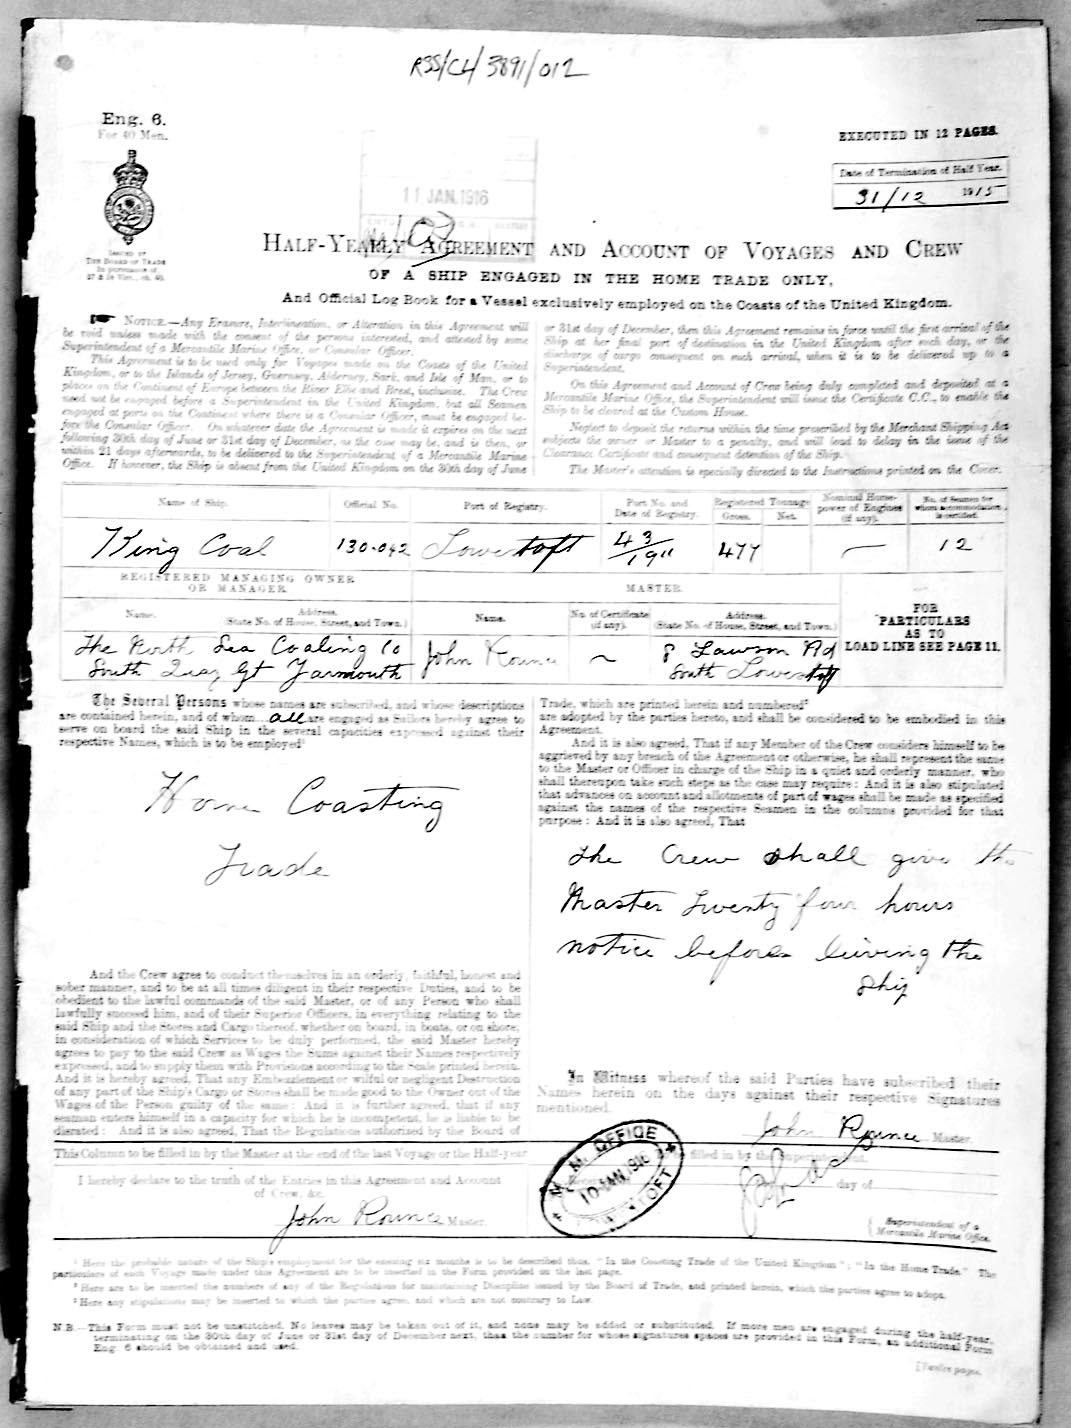 RSS/CL/3891/012
Eng. 6.
For 40 Men.
EXECUTED IN 12 PAGES.
Date of Termination of Half Year.
31/12 1915
ISSUED BY
THE BOARD OF TRADE
In pursuance of
11 JAN. 1916
HALF-YEARLY AGREEMENT AND ACCOUNT OF VOYAGES AND CREW
OF A SHIP ENGAGED IN THE HOME TRADE ONLY,
And Official Log Book for a Vessel exclusively employed on the Coasts of the United Kingdom.
NOTICE.—Any Erasure, Interlineation, or Alteration in this Agreement will
be void unless made with the consent of the persons interested, and attested by some
Superintendent of a Mercantile Marine Office, or Consular Officer.
This Agreement is to be used only for Voyages made on the Coasts of the United
Kingdom, or to the Islands of Jersey, Guernsey, Alderney, Sark, and Isle of Man, or to
places on the Continent of Europe between the River Elbe and Brest, inclusive. The Crew
need not be engaged before a Superintendent in the United Kingdom, but all Seamen
engaged at ports on the Continent where there is a Consular Officer, must be engaged be-
fore the Consular Officer. On whatever date the Agreement is made it expires on the next
following 30th day of June or 31st day of December, as the case may be, and is then, or
within 21 days afterwards, to be delivered to the Superintendent of a Mercantile Marine
Office. If however, the Ship is absent from the United Kingdom on the 30th day of June
or 31st day of December, then this Agreement remains in force until the first arrival of the
Ship at her final port of destination in the United Kingdom after such day, or the
discharge of cargo consequent on such arrival, when it is to be delivered up to a
Superintendent.
On this Agreement and Account of Crew being duly completed and deposited at a
Mercantile Marine Office, the Superintendent will issue the Certificate C.C., to enable the
Ship to be cleared at the Custom House.
Neglect to deposit the returns within the time prescribed by the Merchant Shipping Act
subjects the owner or Master to a penalty, and will lead to delay in the issue of the
Clearance Certificate and consequent detention of the Ship.
The Master's attention is specially directed to the Instructions printed on the Cover.
Name of Ship. Official No. Port of Registry. Port No. and Date of Registry. Registered Tonnage Gross. Net. Nominal Horse-power of Engines (if any). No. of Seamen for whom accommodation is certified.
King Coal 130.042 Lowestoft 43/1911 477 — 12
REGISTERED MANAGING OWNER
OR MANAGER.
MASTER.
Name. Address. (State No. of House, Street, and Town.) Name. No. of Certificate (if any). Address. (State No. of House, Street, and Town.)
FOR
PARTICULARS
AS TO
LOAD LINE SEE PAGE 11.
The North Sea Coaling Co
South Quay Gt Yarmouth
John Rounce ~ 8 Lawson Rd
South Lowestoft
The Several Persons whose names are subscribed, and whose descriptions
are contained herein, and of whom all are engaged as Sailors hereby agree to
serve on board the said Ship in the several capacities expressed against their
respective Names, which is to be employed¹
Home Coasting
Trade
And the Crew agree to conduct themselves in an orderly, faithful, honest and
sober manner, and to be at all times diligent in their respective Duties, and to be
obedient to the lawful commands of the said Master, or of any Person who shall
lawfully succeed him, and of their Superior Officers, in everything relating to the
said Ship and the Stores and Cargo thereof, whether on board, in boats, or on shore;
in consideration of which Services to be duly performed, the said Master hereby
agrees to pay to the said Crew as Wages the Sums against their Names respectively
expressed, and to supply them with Provisions according to the Scale printed herein.
And it is hereby agreed, That any Embezzlement or wilful or negligent Destruction
of any part of the Ship's Cargo or Stores shall be made good to the Owner out of the
Wages of the Person guilty of the same: And it is further agreed, that if any
seaman enters himself in a capacity for which he is incompetent, he is liable to be
disrated: And it is also agreed, That the Regulations authorized by the Board of
Trade, which are printed herein and numbered²
are adopted by the parties hereto, and shall be considered to be embodied in this
Agreement.
And it is also agreed, That if any Member of the Crew considers himself to be
aggrieved by any breach of the Agreement or otherwise, he shall represent the same
to the Master or Officer in charge of the Ship in a quiet and orderly manner, who
shall thereupon take such steps as the case may require: And it is also stipulated
that advances on account and allotments of part of wages shall be made as specified
against the names of the respective Seamen in the columns provided for that
purpose: And it is also agreed, That
The Crew shall give the
Master twenty four hours
notice before leiving the
Ship
In Witness whereof the said Parties have subscribed their
Names herein on the days against their respective Signatures
mentioned.
John Rounce Master.
This Column to be filled in by the Master at the end of the last Voyage or the Half-year
I hereby declare to the truth of the Entries in this Agreement and Account
of Crew, &c.
John Rounce Master.
to be filled in by the Superintendent.
day of
M. M. OFFICE
10 JAN. 1916
LOWESTOFT
Superintendent of a
Mercantile Marine Office.
¹ Here the probable nature of the Ship's employment for the ensuing six months is to be described thus, "In the Coasting Trade of the United Kingdom"; "In the Home Trade." The
particulars of each Voyage made under this Agreement are to be inserted in the Form provided on the last page.
² Here are to be inserted the numbers of any of the Regulations for maintaining Discipline issued by the Board of Trade, and printed herein, which the parties agree to adopt.
³ Here any stipulations may be inserted to which the parties agree, and which are not contrary to Law.
N.B.—This Form must not be unstitched. No leaves may be taken out of it, and none may be added or substituted. If more men are engaged during the half-year,
terminating on the 30th day of June or 31st day of December next, than the number for whose signatures spaces are provided in this Form, an additional Form
Eng. 6 should be obtained and used.
[Twelve pages.